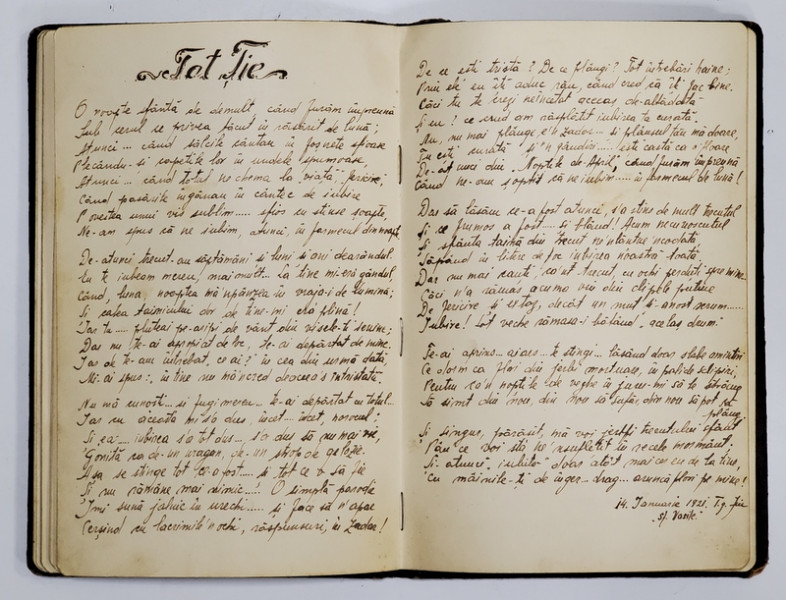 Tot Ție
O noapte sfântă de demult, când juram împreună
Sub cerul ce privea tăcut în răsărit de lună;
Atunci... când sălciile cântau în foșnete
Plecându-și în undele spumoase,
Atunci... când totul ne chema la viață, fericire,
Când pasările îngânau în cântec de iubire
Povestea unui vis sublim..... spus cu stinse șoapte,
Ne-am spus că ne iubim, atunci, în farmecul din noapte.
De-atunci trecut-au săptămâni și luni și ani dearândul
Eu te iubeam mereu, mai mult... La tine mi-era gândul
Când, luna, noaptea mă 'npânzea în vraja-i de lumină;
Și calea taimicului dor de tine-mi era plină!
Iar tu..... pluteai pe-aripi de vânt din visele-ți senine;
Dar nu te-ai apropiat de loc, te-ai depărtat de mine.
Iar de te-am întrebat, ce ai? în cea din urmă dată,
Mi-ai spus:, în tine nu mă 'ncred deaceea's întristată.
Nu mă cunosti... și fugi mereu... te-ai depărtat cu totul..
Iar cu aceasta mi s'a dus, încet... încet, norocul;
Și ea..... iubirea s'a tot dus.... s'a dus să nu mai vie,
Gonită ca de-un uragan, de-un strop de gelozie.
Așa se stinge tot ce-a fost.... și tot ce o să fie
Și nu rămâne mai nimic....! O simplă parodie
Îmi sună jalnic în urechi...... și face să n'apar
Cerșind cu lacrimile 'n ochi, răspunsuri, în zadar!
De ce ești tristă? De ce plângi? Tot întrebări haine;
Prin cari eu îți aduc rău, când cred că îți fac bine.
Căci tu te crezi neîncetat aceeaș de-altădată
Și eu! ce crud am răsplătit iubirea ta curată.
Nu, nu mai plânge, e'n zadar... și plânsul tău mă doare,
Tu ești curată și'n gândiri..... ești castă ca o floare
De-atunci din „Noptile de April", când juram împreună
Când ne-am șoptit că ne iubim..... în farmecul de lună!
Dar să lăsăm ce-a fost atunci, s'a stins de mult trecutul
Și ce frumos a fost..... și blând! Acum necunoscutul
Și sfânta taină din trecut ne'ntântă niciodată,
Săpând în litere de foc iubirea noastră toată
Dar nu mai caut' ca'n trecut, cu ochi pierduți spre mine
Căci n'a rămas acuma din din clipele puține
De fericire și extaz, decât un mut și anost serum......
Iubire! Tot veche rămas-a bătând acelaș drum.
Te-ai aprins... ai ars... te stingi... lăsând doar slabe amintiri
Ce dorm ca flori din ierbi mortuare, în palide sclipiri;
Pentru ca'n nopțile de veghe în jurul mi să te strâng
Să simt din nou, din nou să sufăr, din nou să pot să
plâng.
Și singur, părăsit, mă voi jertfi trecutului sfânt
Pân' ce voi sta ne'nsuflețit în recele mormânt.
Și-atunci, iubito doar atât mai cer eu de la tine,
Cu mâinile-ți de înger... drag... aruncă flori pe mine!
14. Ianuarie 1921. T.g. Jiu
„Sf. Vasile."